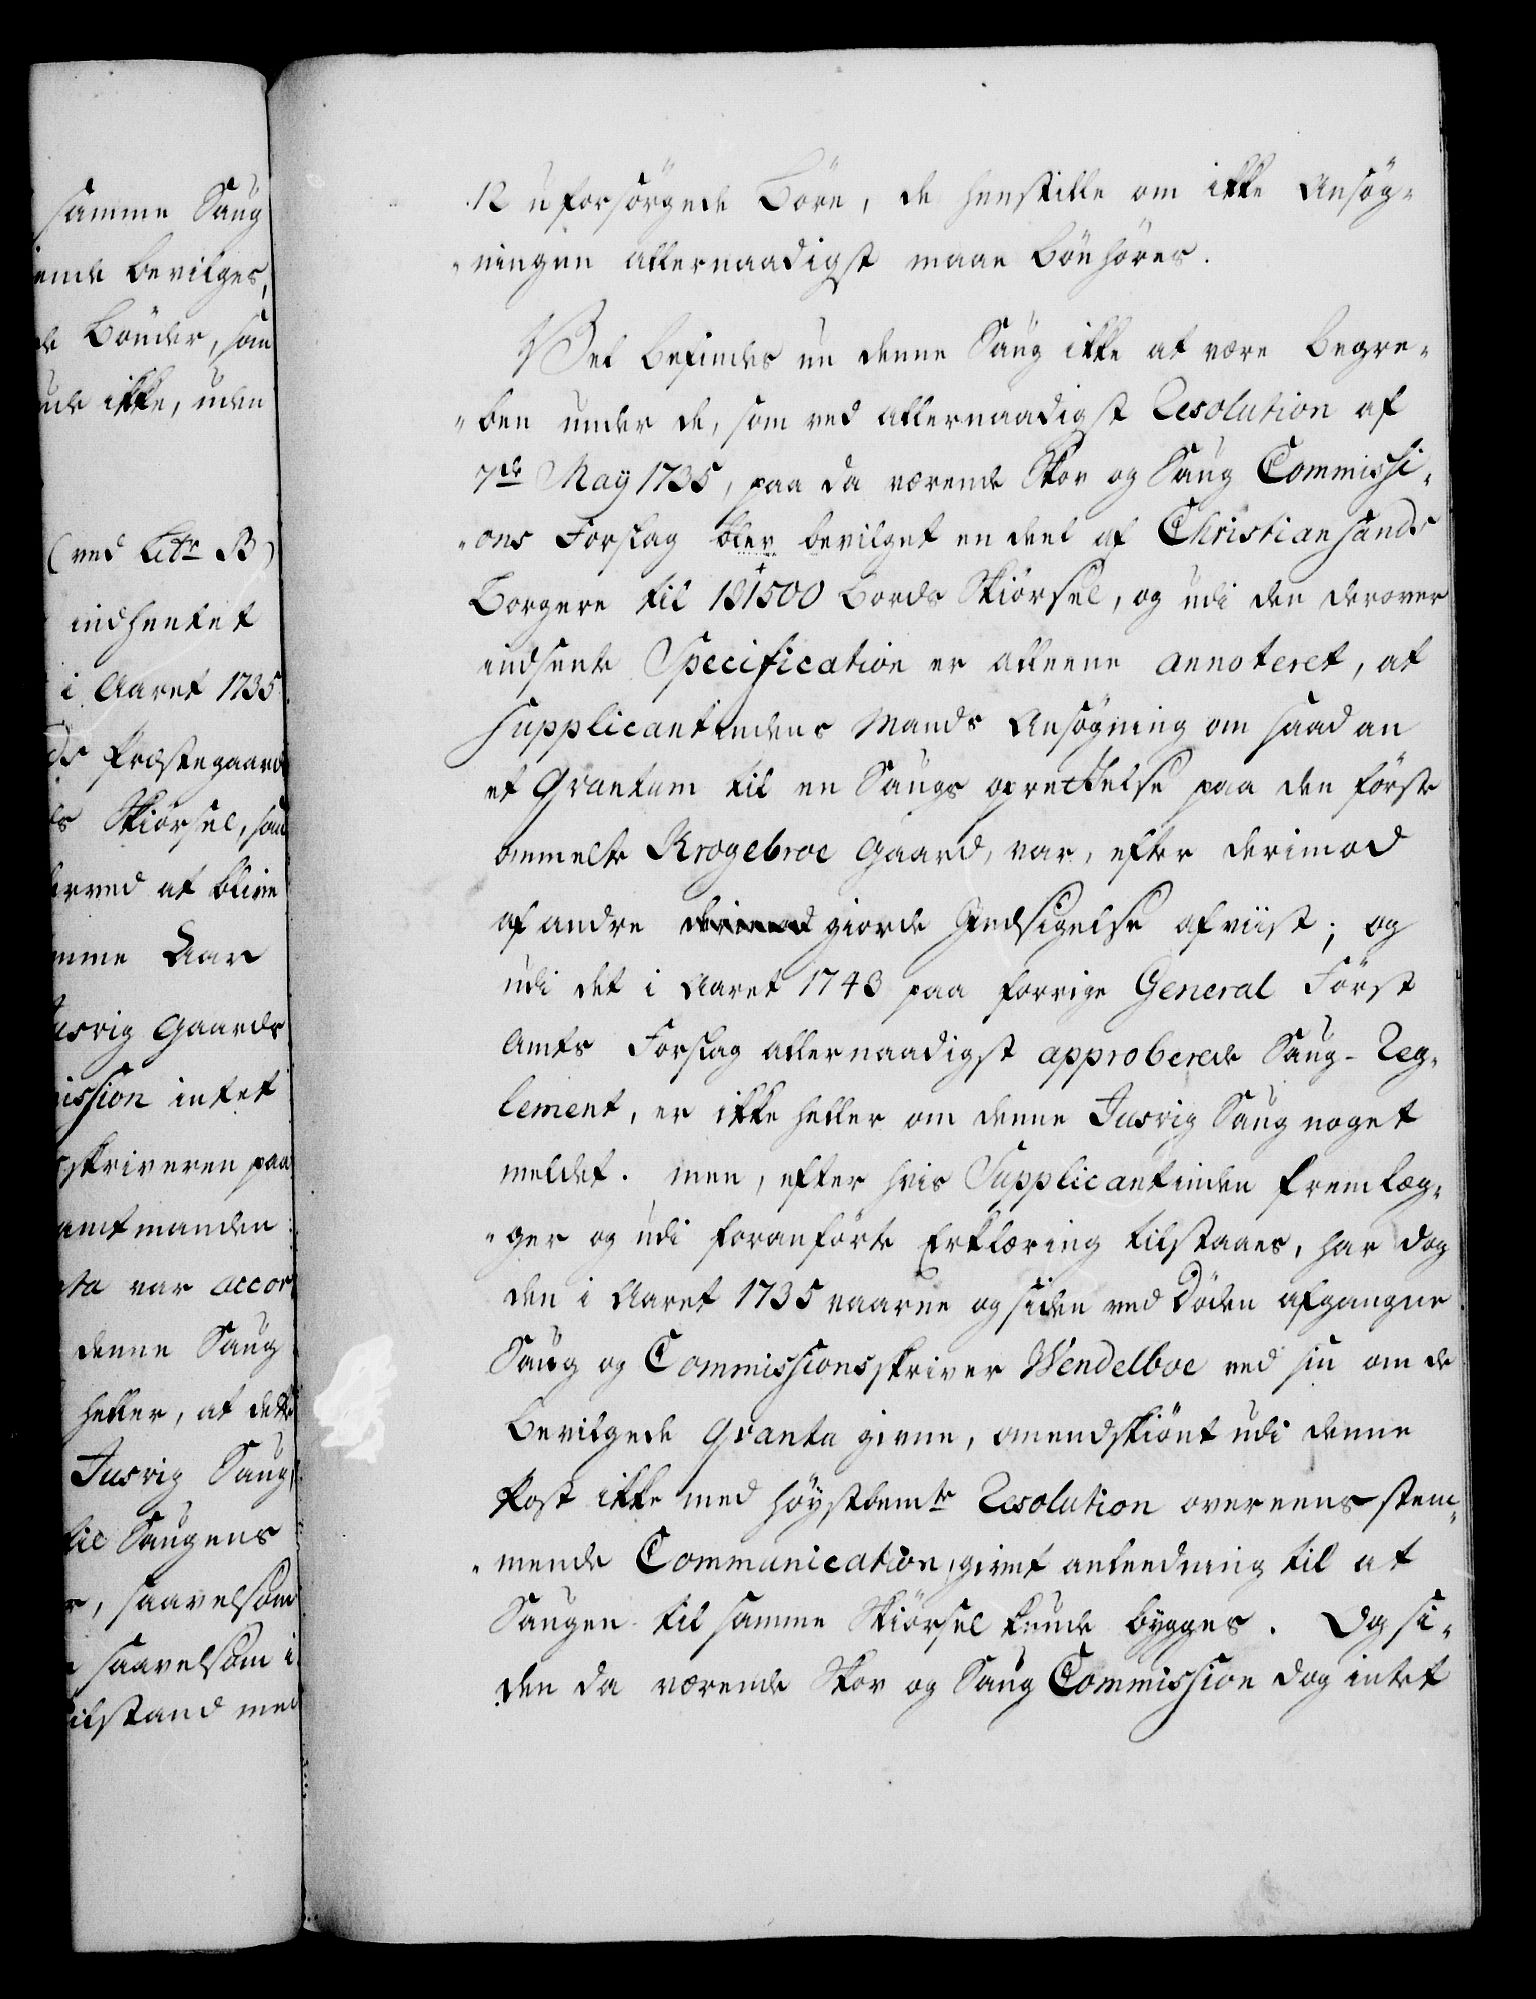 samme Saug
ende bevilges,
de Bönder, saa
nde ikke, uden
(ved Litr B)
indhentet
i Aaret 1735
ds Præstegaard
ds Skiörsel, saa
erved at blive
mme Aar
Jusvig Gaarde
ission intet
skriveren paa
amtmanden
nta var accor
denne Saug
heller, at dette
Jusvig Saug
til Saugens
r, saavelsom
saavelsom i
ilstand med
12 uforsörgede Börn, de henstille om ikke Ansög-
-ningen allernaadigst maae bönhöres.
Vel befindes nu denne Saug ikke at være begre-
-ben under de, som ved allernaadigst Resolution af
7de May 1735, paa da værende Skov og Saug Commissi-
-ons Forslag blev bevilget en deel af Christiansands
Borgere til 181500 Bords Skiörsel, og udi den derover
indsente Specification er alleene annoteret, at
Supplicantindens Mands Ansögning om saadan
et Qvantum til en Saugs oprettelse paa den först
ommelte Krogebroe Gaard, var, efter derimod
af andre derimod giorde Giedsigelse afviist; og
udi det i Aaret 1743 paa forrige General Först
Amts Forslag allernaadigst approberede Saug-Reg-
lement, er ikke heller om denne Jusvig Saug noget
meldet. men, efter hvis Supplicantinden fremlæg-
-ger og udi foranförte Erklæring tilstaaes, har dog
den i Aaret 1735 vaarne og siden ved Döden afgangne
Saug og Commissionsskriver Wendelboe ved sin om de
bevilgede Qvanta givne, omendskiönt udi denne
Post ikke med höystbemte Resolution overeensstem-
-mende Communication, givet anleedning til at
Saugen til samme Skiörsel kunde bygges. Og si-
den da værende Skov og Saug Commission dog intet